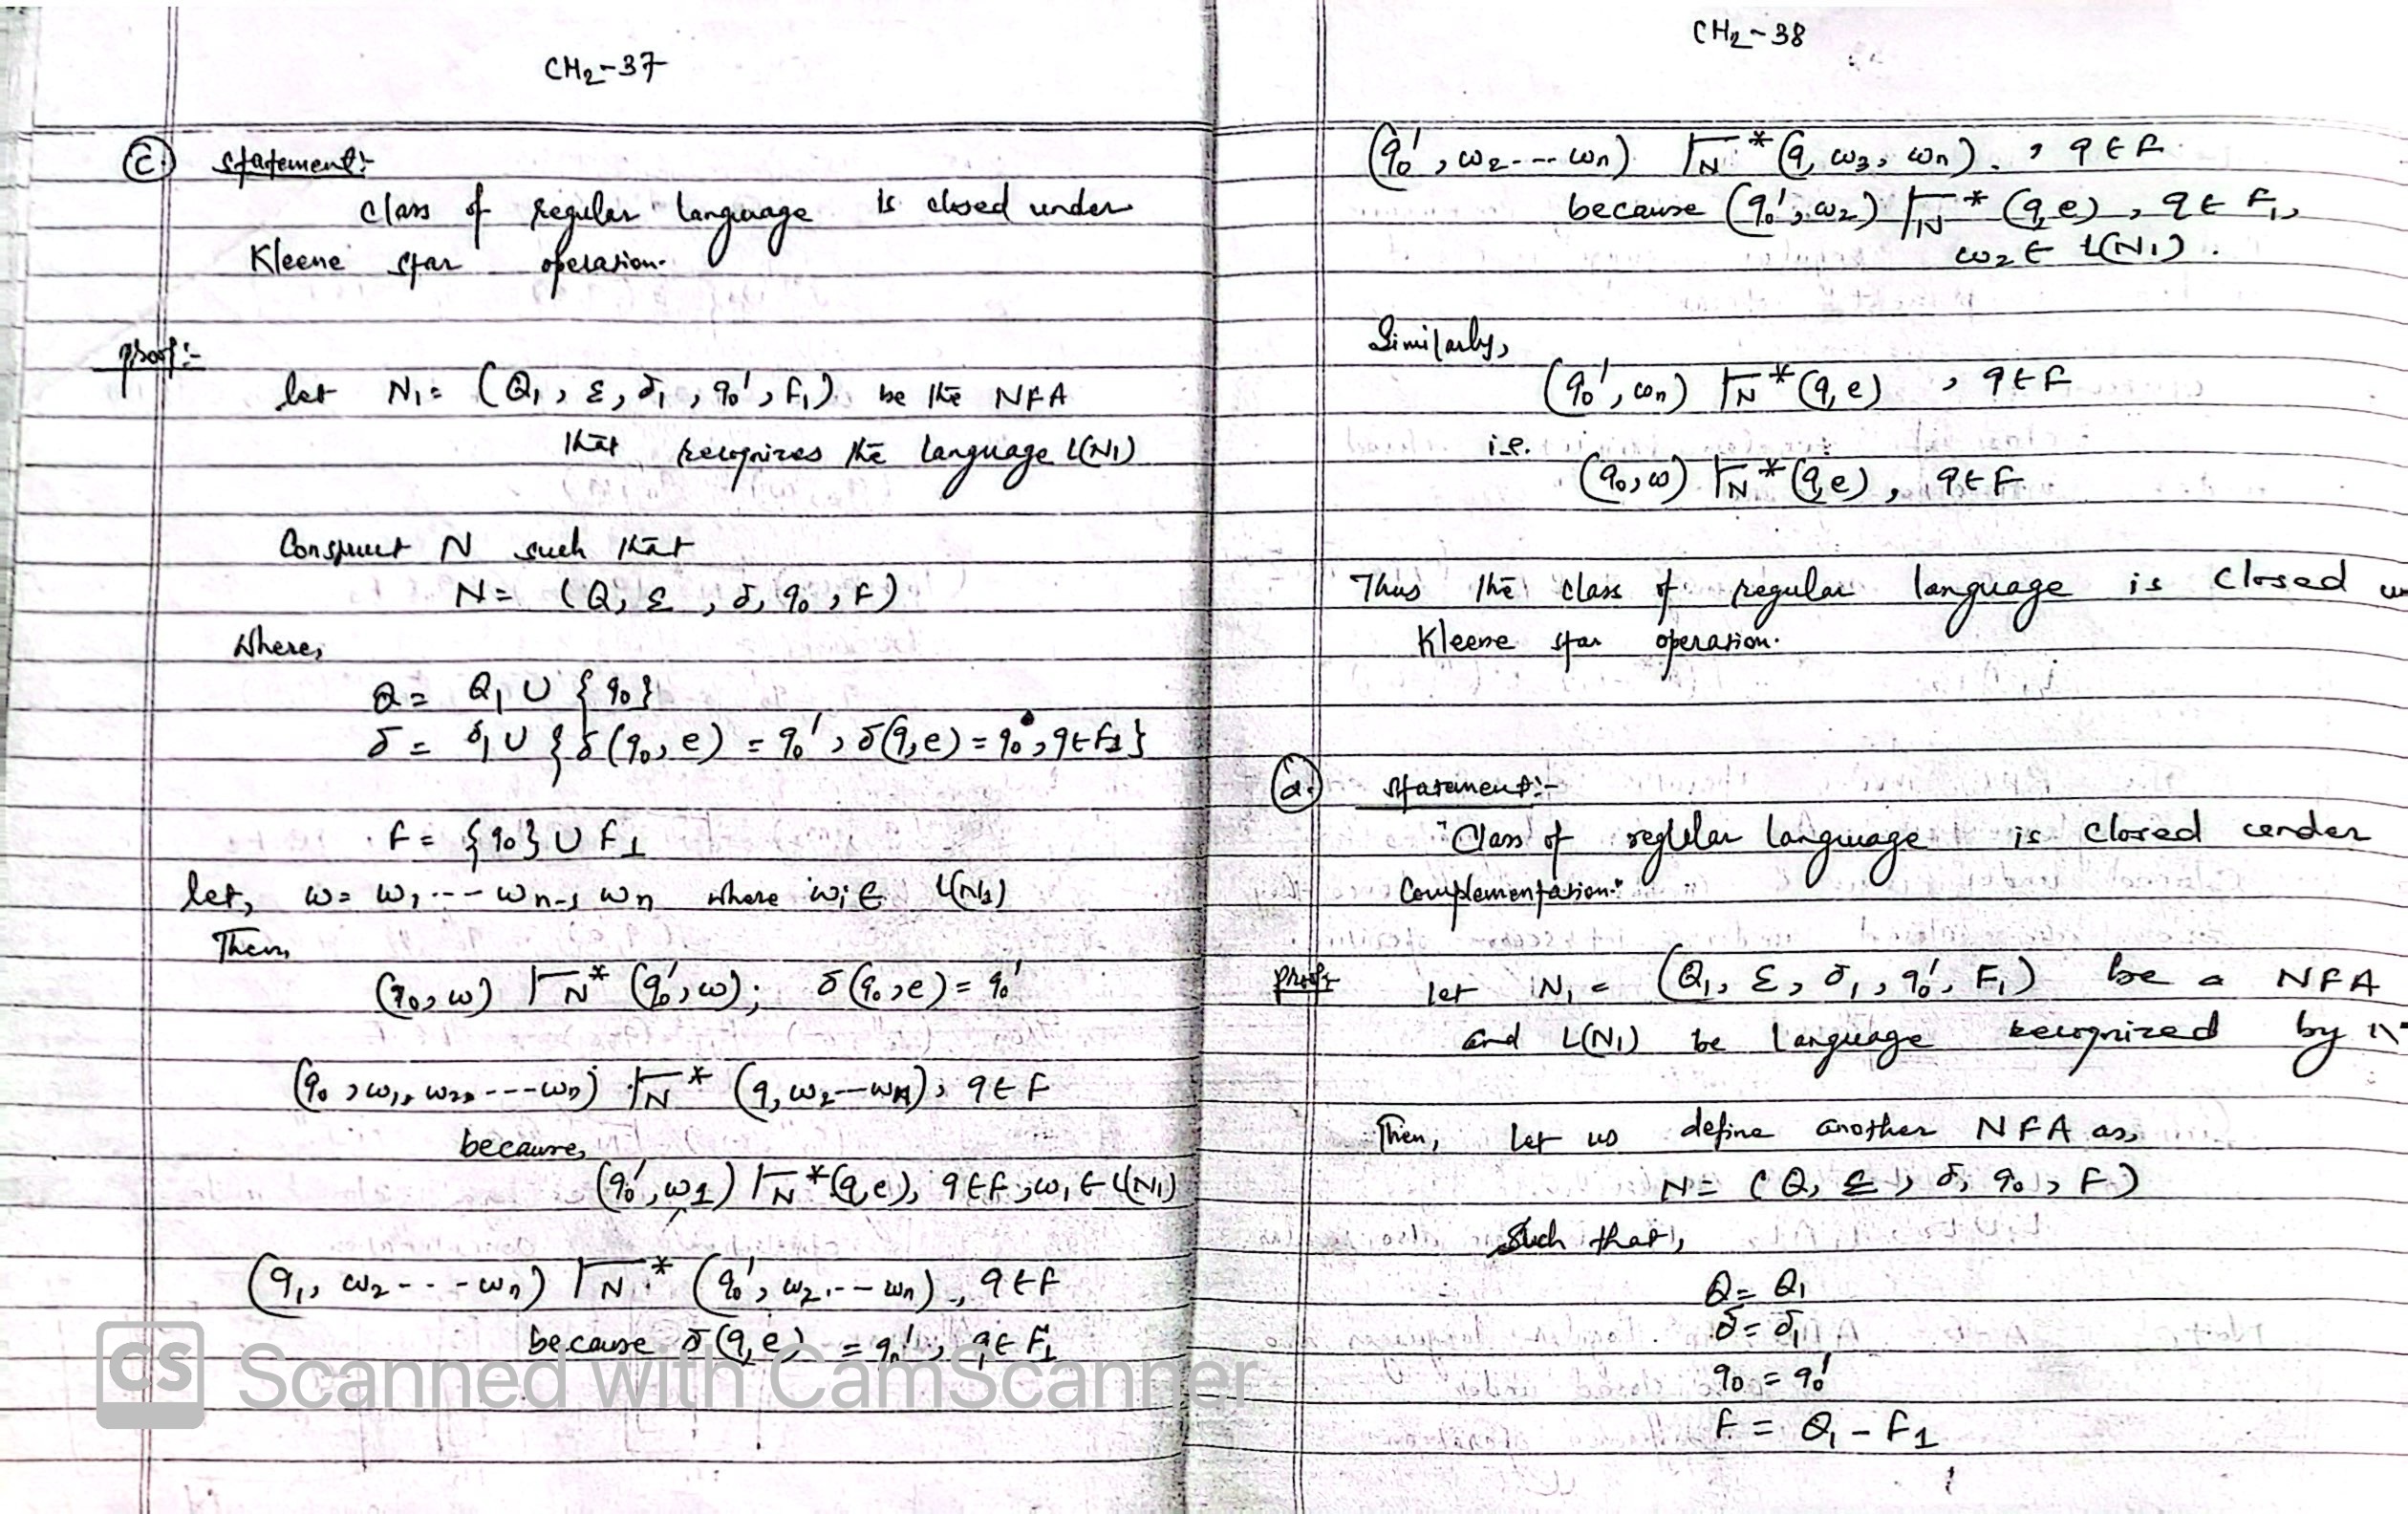 CH2-37
(c.) Statement:-
Class of regular language is closed under
Kleene star operation.
proof:-
let N₁ = (Q₁, Σ, δ₁, q₀', F₁) be the NFA
that recognizes the language L(N₁)
Construct N such that
N = (Q, Σ, δ, q₀, F)
Where,
Q = Q₁ ∪ {q₀}
δ = δ₁ ∪ {δ(q₀, e) = q₀', δ(q, e) = q₀', q ∈ F₁}
F = {q₀} ∪ F₁
let, w = w₁ --- wₙ₋₁ wₙ where wᵢ ∈ L(N₁)
Then,
(q₀, w) ⊢N* (q₀', w); δ(q₀, e) = q₀'
(q₀, w₁, w₂, ---wₙ) ⊢N* (q, w₂--wₙ), q ∈ F
because,
(q₀', w₁) ⊢N* (q, e), q ∈ F, w₁ ∈ L(N₁)
(q₁, w₂ - - - wₙ) ⊢N* (q₀', w₂ --- wₙ), q ∈ F
because δ(q, e) = q₀', q ∈ F₁
CS Scanned with CamScanner
CH2-38
(q₀', w₂ --- wₙ) ⊢N* (q, w₃, wₙ), q ∈ F
because (q₀', w₂) ⊢N* (q, e), q ∈ F₁,
w₂ ∈ L(N₁).
Similarly,
(q₀', wₙ) ⊢N* (q, e), q ∈ F
i.e.
(q₀, w) ⊢N* (q, e), q ∈ F
Thus the class of regular language is closed
Kleene star operation.
(d.) Statement:-
"Class of reglular language is closed under
Complementation."
proof:-
let N₁ = (Q₁, Σ, δ₁, q₀', F₁) be a NFA
and L(N₁) be language recognized by
Then, let us define another NFA as,
N = (Q, Σ, δ, q₀, F)
Such that,
Q = Q₁
δ = δ₁
q₀ = q₀'
F = Q₁ - F₁